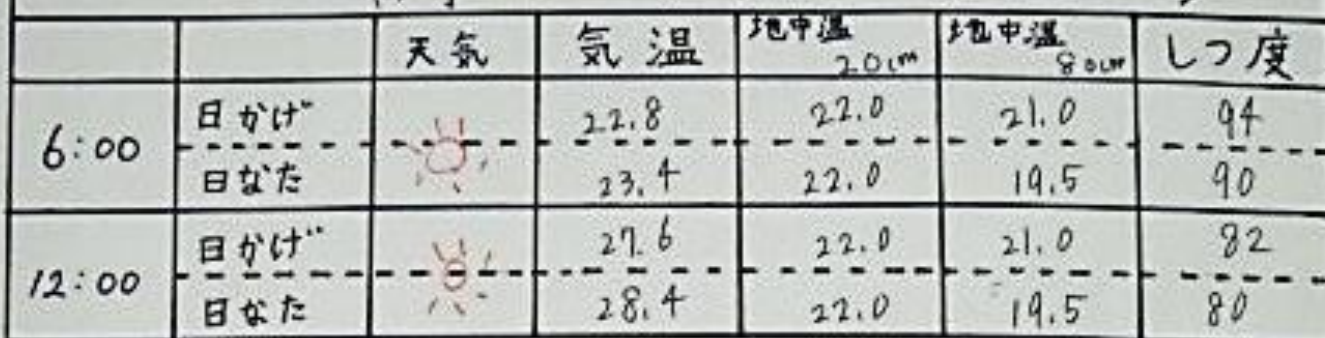 天気 気温 地中温20cm 地中温80cm しつ度
6:00 日かげ 22.8 22.0 21.0 94
日なた 23.4 22.0 19.5 90
12:00 日かげ 27.6 22.0 21.0 82
日なた 28.4 22.0 19.5 80